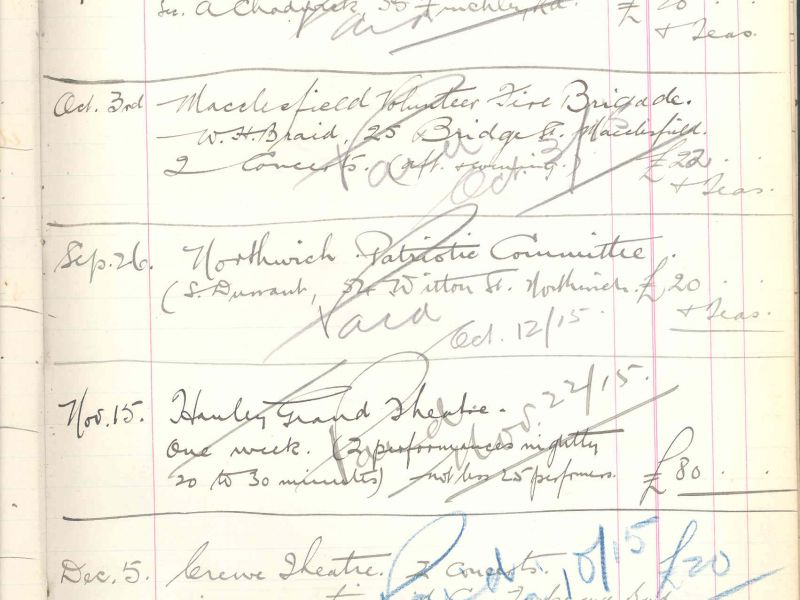 Sec. A Chadwick, 55 Finchley Rd. £20
+ Teas.
Paid
Oct. 3rd Macclesfield Volunteer Fire Brigade.
W. H. Braid, 25 Bridge St. Macclesfield.
2 Concerts. (aft. + evening.) £22
+ Teas.
Paid Oct.
Sep. 26. Northwich Patriotic Committee.
(S. Durrant, Witton St. Northwich. £20
+ Teas.
Paid Oct. 12/15.
Nov. 15. Hanley Grand Theatre.
One week. (2 performances nightly
20 to 30 minutes) not less 25 performers. £80
Paid Nov 22/15.
Dec. 5. Crewe Theatre. 2 concerts. £20
Paid 10/15